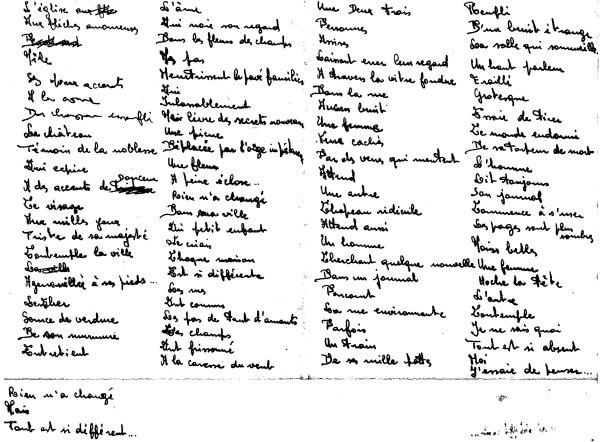 L'église
Aux flèches amoureuses
Mêle
Ses doux accents
A la
Du chausson
Le château
Témoin de la noblesse
Qui expire
A des accents de Douceur
Le visage
Aux milles yeux
Triste de sa majesté
Contemple la ville
Agenouillée à ses pieds...
Le Cher
Source de verdure
De son murmure
Entretient
L'âme
Qui noie son regard
Dans les fleurs des champs
Mes pas
Meurtrissent le pavé familier
Qui
Inlassablement
Mais livre des secrets nouveaux
Une pierre
Déplacée par l'orge
Une fleur
A peine éclose...
Rien n'a changé
Dans ma ville
Qui petit enfant
Je criais
Chaque maison
Est si différente
Les rues
Ont connu
Les pas de tant d'amants
Les champs
Ont frissonné
A la caresse du vent
Une Deux Trois
Personnes
Assises
Laissent errer leur regard
A travers la vitre fendue
Dans la rue
Aucun bruit
Une femme
Yeux cachés
Par des verres qui mentent
Attend
Une autre
Chapeau ridicule
Attend aussi
Un homme
Cherchant quelque nouvelle
Dans un journal
Parcourt
La rue environnante
Parfois
Un train
De ses mille pattes
Remplit
D'un bruit étrange
La salle qui sommeille
Un haut parleur
Eraillé
Grotesque
Essaie de tirer
Ce monde endormi
De sa torpeur de mort
L'homme
Lit toujours
Son journal
Commence à s'user
Les pages sont plus sombres
Moins belles
Une femme
Hoche la tête
L'autre
Contemple
Je ne sais quoi
Tout est si absent
Moi
J'essaie de penser...
Rien n'a changé
Mais
Tout est si différent...